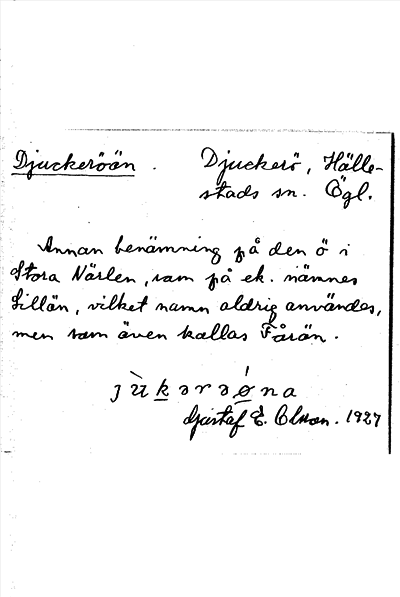 Djuckeröän. Djuckerö, Hälle-
stads sn. Ögl.
Annan benämning på den ö i
Stora Närlen, som på ek. nämnes
Lillön, vilket namn aldrig användes,
men som även kallas Fårön.
jùkərəǿna
Gustaf E. Olsson. 1927